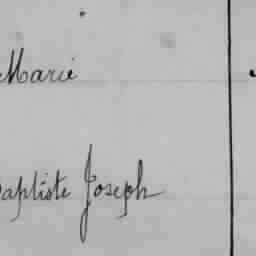 Marie
Baptiste Joseph